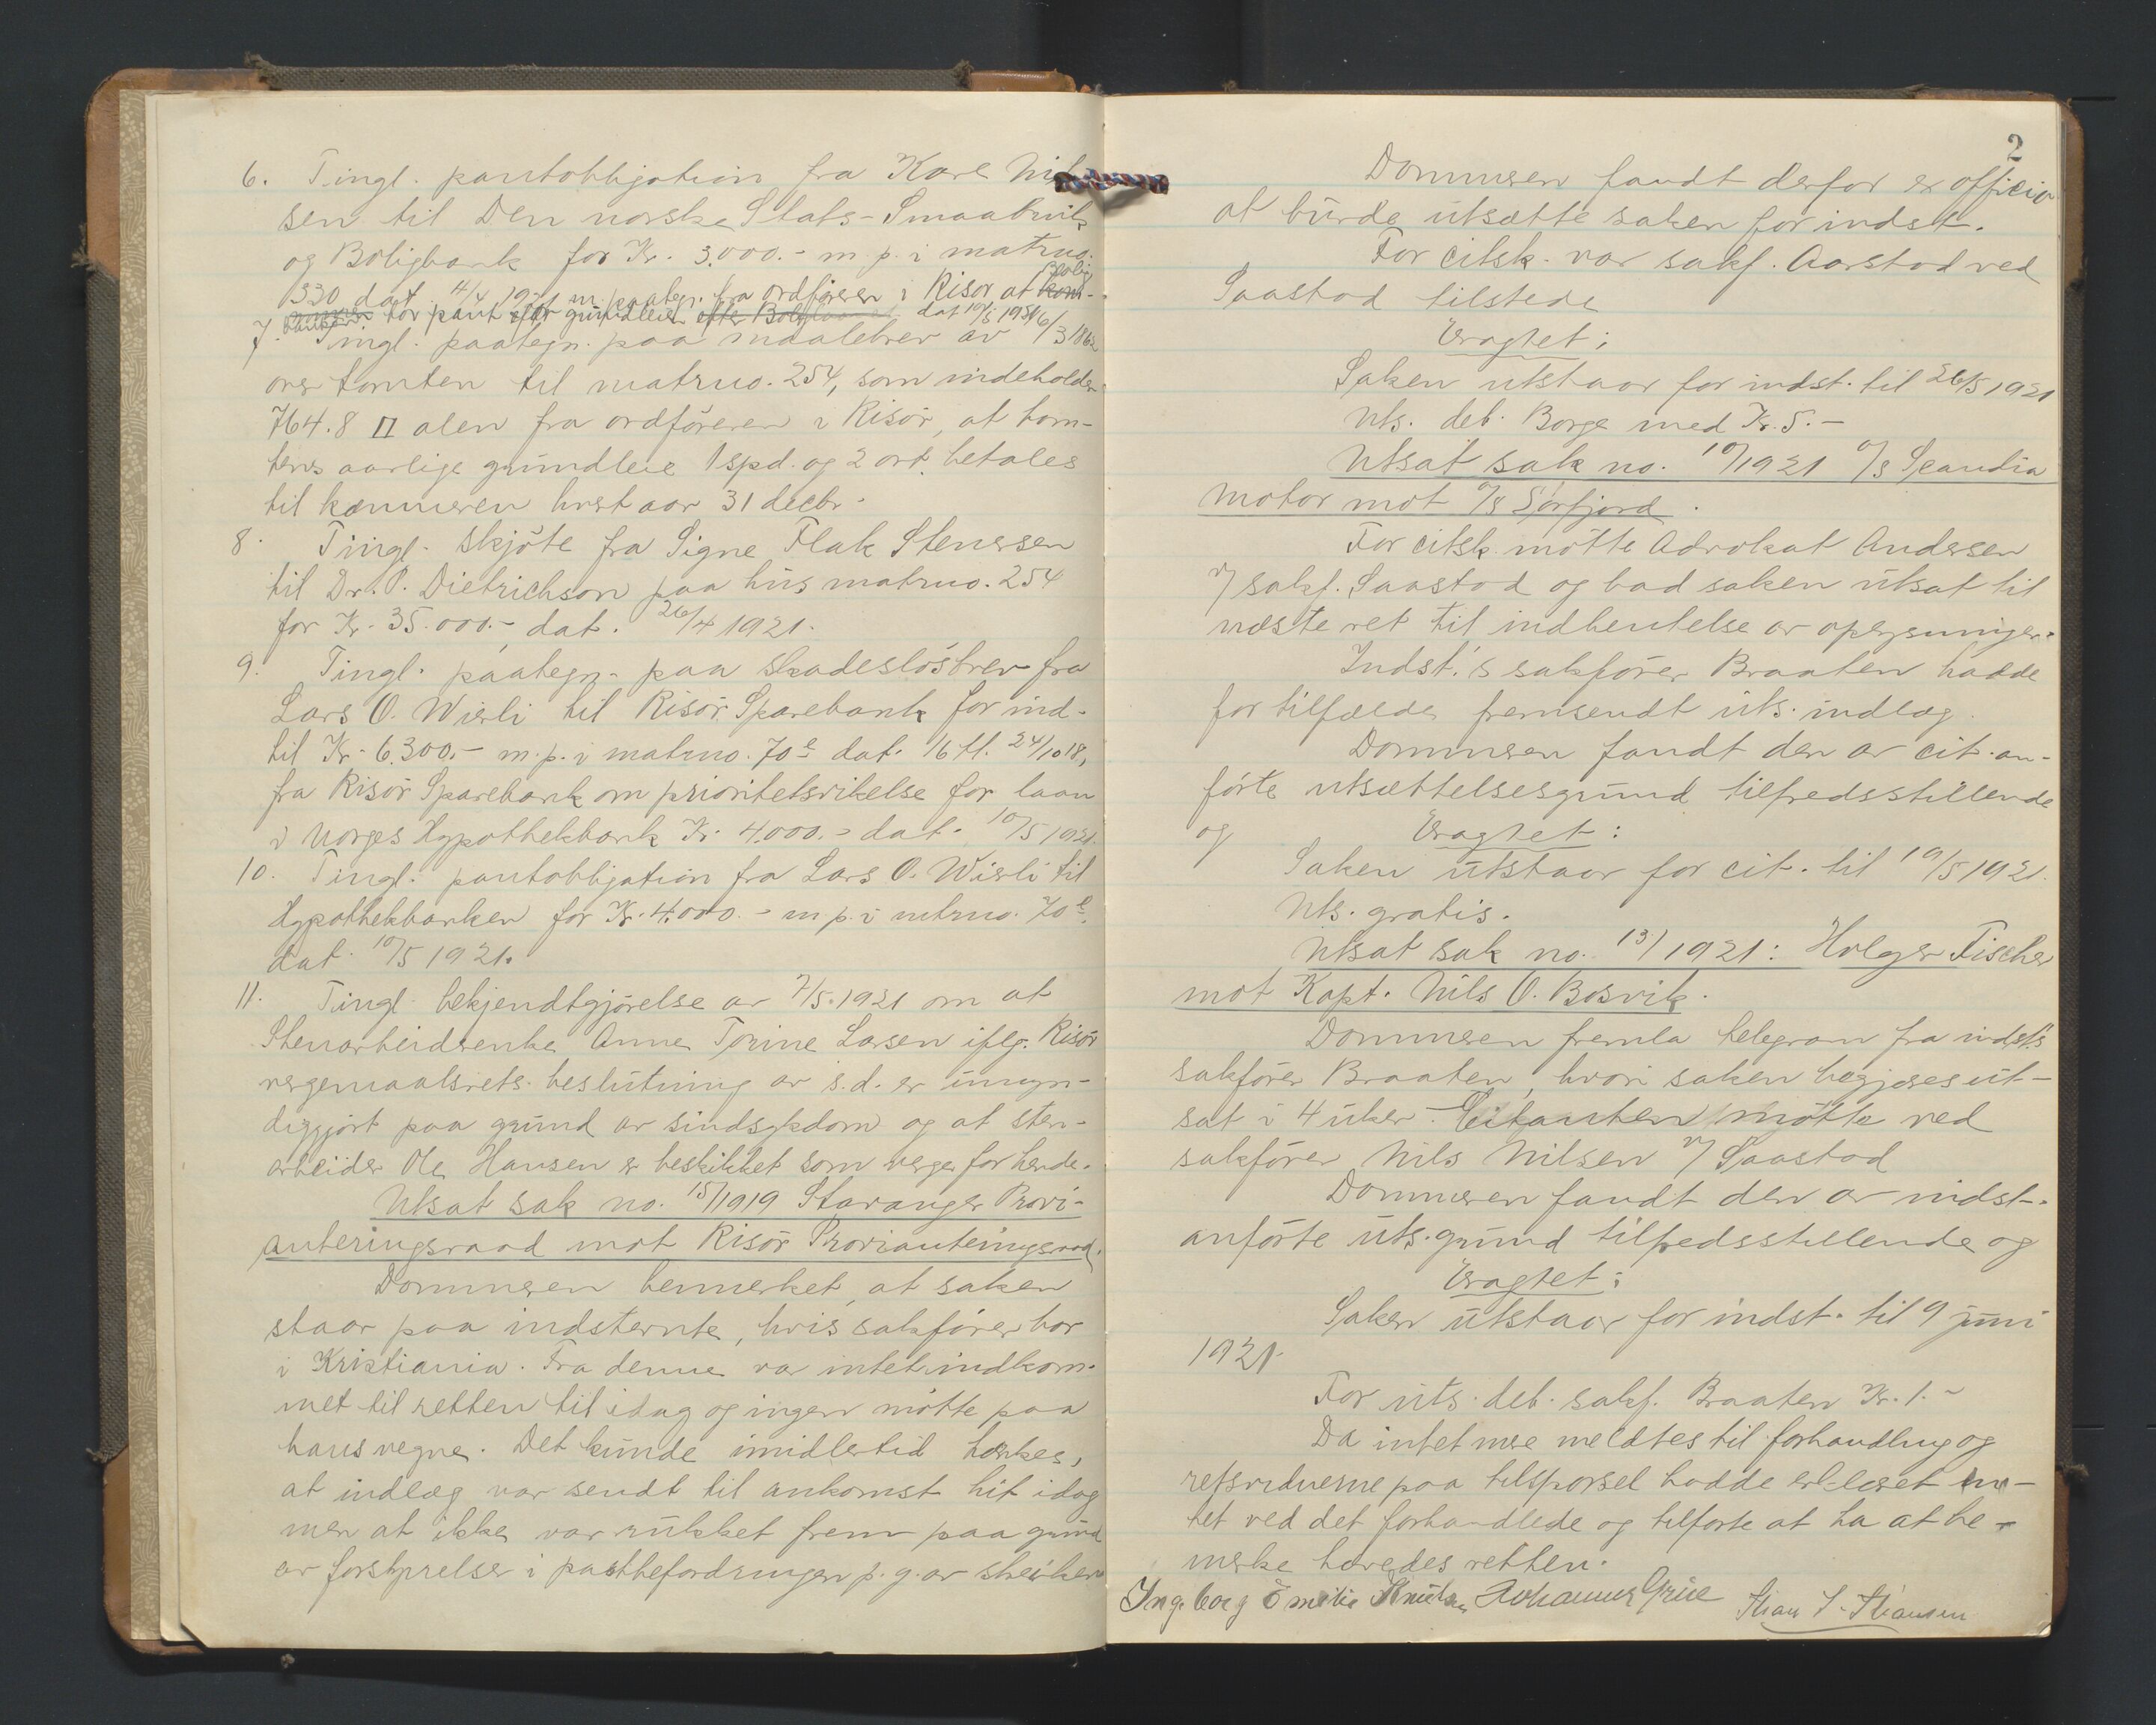 6. Tingl. pantobligation fra Karl Nil-
sen til Den norske Stats-Smaabruk
og Boligbank for Kr. 3.000.- m. p. i matrno.
330 dat. 4/4 1921 m. paategn. fra ordföreren i Risör at Bolig
for pant for grundleie dat 10/5 1921
7. Tingl. paategn. paa maalebrev av 6/3 1862
over tomten til matrno. 254, som indeholder
764.8 □ alen fra ordföreren i Risör, at tom-
tens aarlige grundleie 1 spd. og 2 ort. betales
til kæmneren hvert aar 31 decbr.
8. Tingl. skjöte fra Signe Flak Stenersen
til Dr. P. Dietrichson paa hus matrno. 254
for Kr. 35.000.- dat. 26/4 1921.
9. Tingl. paategn. paa skadeslösbrev fra
Lars O. Wierli til Risör Sparebank for ind-
til Kr. 6.300.- m. p. i matrno. 70e dat. 16 tl. 24/10 18,
fra Risör Sparebank om prioritetsvikelse for laan
i Norges Hypothekbank Kr. 4.000.- dat. 10/5 1921.
10. Tingl. pantobligation fra Lars O. Wierli til
Hypothekbanken for Kr. 4.000.- m p. i mtrno. 70e.
dat. 10/5 1921.
11. Tingl. bekjendtgjörelse av 7/5. 1921 om at
Stenarbeiderenke Anne Torine Larsen ifölg. Risör
vergemaalsrets beslutning av s.d. er umyn-
diggjort paa grund av sindsykdom og at sten-
arbeider Ole Hansen er beskikket som verge for hende.
Utsat sak no. 15/1919 Stavanger Provi-
anteringsraad mot Risör Provianteringsraad.
Dommeren bemerket, at saken
staar paa indstevnte, hvis sakförer bor
i Kristiania. Fra denne var intet indkom-
met til retten til idag og ingen mötte paa
hans vegne. Det kunde imidlertid tænkes,
at indlæg var sendt til ankomst hit idag
men at ikke var rukket frem paa grund
av forstyrrelser i postbefordringen p. g. av streiken
2
Dommeren fandt derfor ex officio
at burde utsætte saken for indst.
For citsk. var sakf. Aarstad ved
Saastad tilstede
Eragtet:
Saken utstaar for indst. til 26/5 1921
Uts. deb. Borge med Kr. 5.-
Utsat sak no. 10/1921 A/S Scandia
motor mot A/S Sörfjord.
For citsk. mötte Advokat Andersen
v/ sakf. Saastad og bad saken utsat til
næste ret til indhentelse av oplysninger.
Indst.'s sakförer Braaten hadde
for tilfælde fremsendt uts. indlæg.
Dommeren fandt den av cit. an-
förte utsættelsesgrund tilfredsstillende
og Eragtet:
Saken utstaar for cit. til 19/5 1921.
Uts. gratis.
Utsat sak no. 13/1921: Holger Fischer
mot Kapt. Nils O. Bosvik.
Dommeren fremla telegram fra indst's
sakförer Braaten, hvori saken begjæres ut-
sat i 4 uker. Citanten mötte ved
sakförer Nils Nilsen v/ Saastad
Dommeren fandt den av indst.
anförte uts. grund tilfredsstillende og
Eragtet:
Saken utstaar for indst. til 9 juni
1921.
For uts. deb. sakf. Braaten Kr. 1.-
Da intet mere meldtes til forhandling og
retsvidnerne paa tilspörsel hadde erklæret in-
tet ved det forhandlede og tilförte at ha at be-
merke hævedes retten.
Ingeborg Emilie Knutsen Johannes Grüe